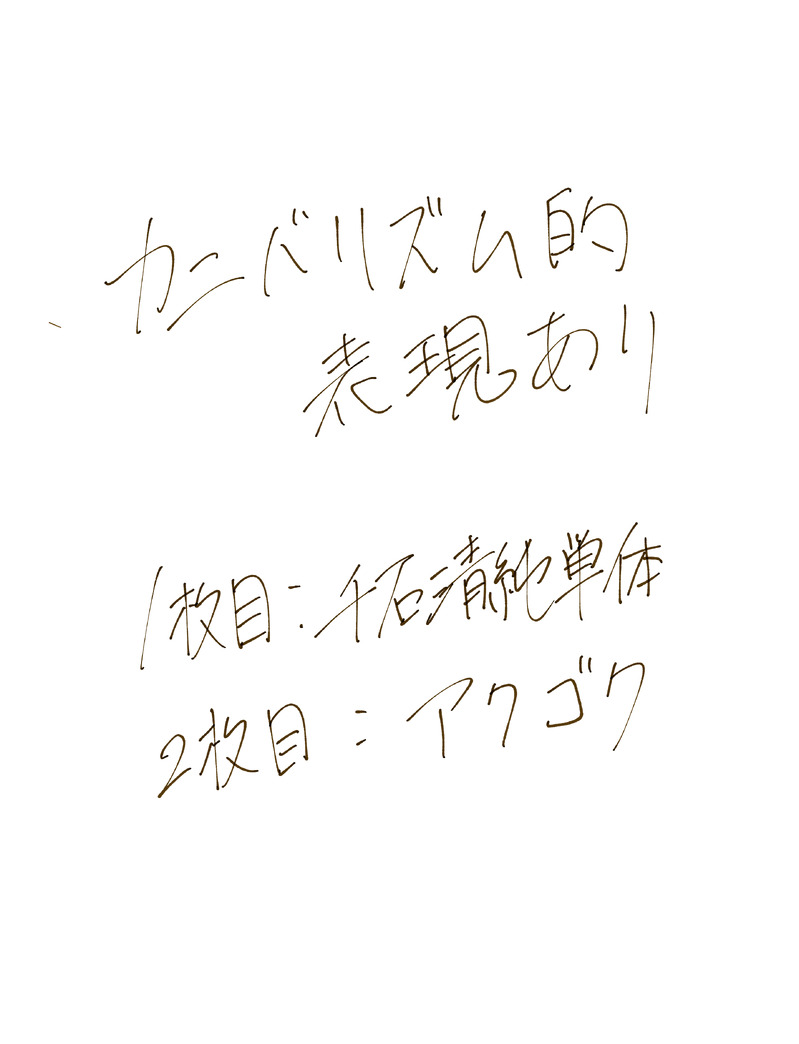 カニバリズム的
表現あり
1枚目:千石清純単体
2枚目:アクゴク